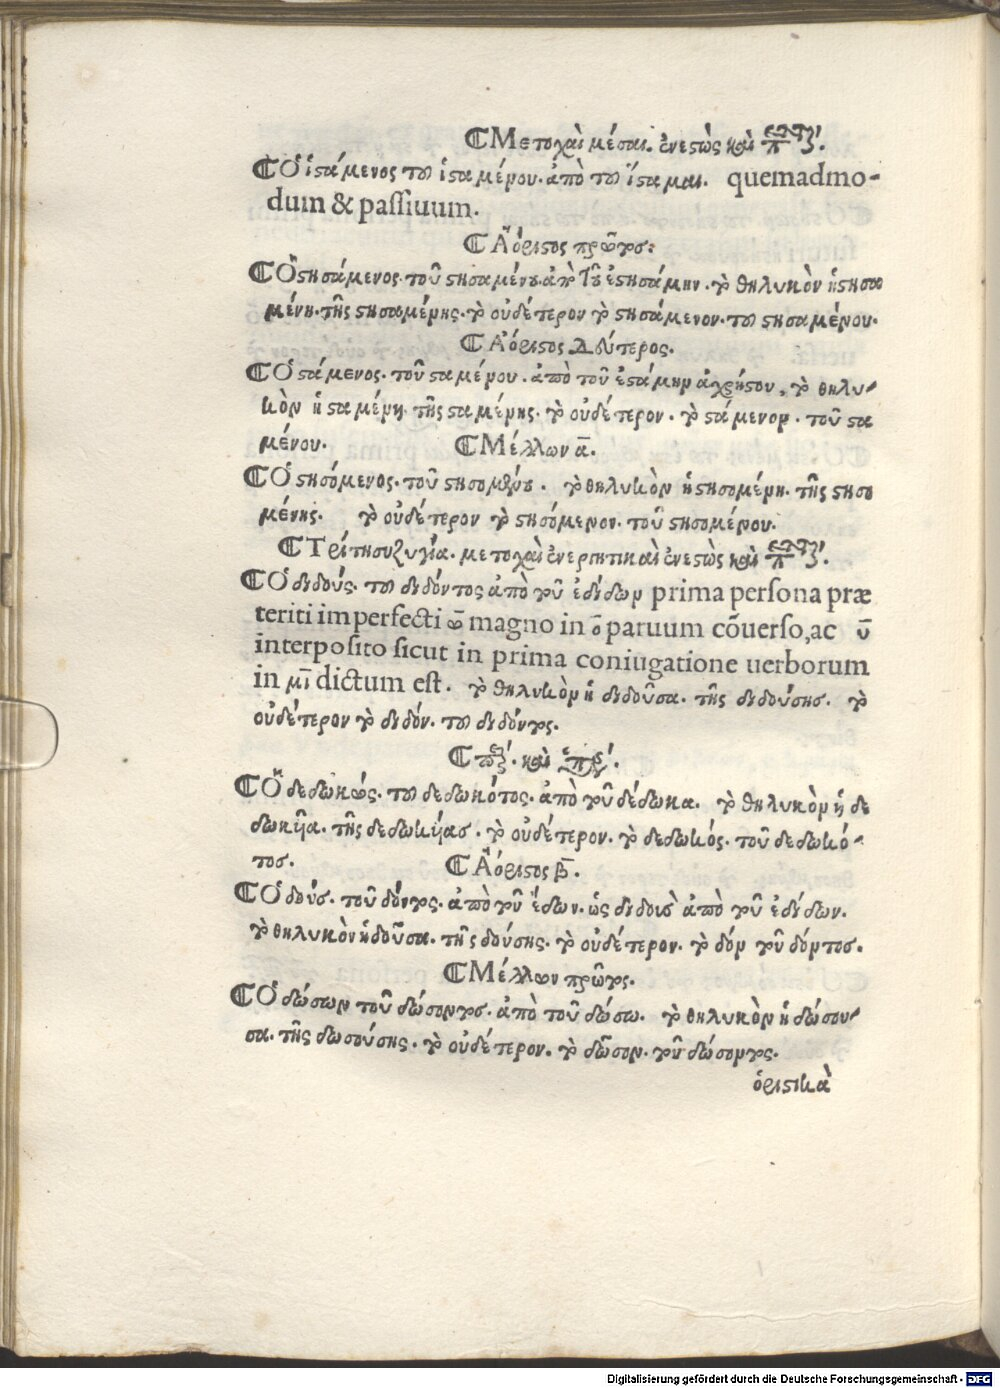 Μετοχαὶ μέσαι. ἐνεστὼς καὶ
Ὁ ἱστάμενος τοῦ ἱσταμένου. ἀπὸ τοῦ ἵσταμαι. quemadmo-
dum & passiuum.
Ἀόριστος πρῶτος:
Ὁ στησάμενος. τοῦ στησαμένου. ἀπὸ τοῦ ἐστησάμην. τὸ θηλυκὸν ἡ στησα
μένη. τῆς στησαμένης. τὸ οὐδέτερον τὸ στησάμενον. τοῦ στησαμένου.
Ἀόριστος Δεύτερος.
Ὁ στάμενος. τοῦ σταμένου. ἀπὸ τοῦ ἐστάμην ἀχρήστου, τὸ θηλυ-
κὸν ἡ σταμένη. τῆς σταμένης. τὸ οὐδέτερον. τὸ στάμενον. τοῦ στα
μένου. Μέλλων α̅.
Ὁ στησόμενος. τοῦ στησομένου. τὸ θηλυκὸν ἡ στησομένη. τῆς στησο
μένης. τὸ οὐδέτερον τὸ στησόμενον. τοῦ στησομένου.
Τρίτη συζυγία. μετοχαὶ ἐνεργητικαὶ ἐνεστὼς καὶ
Ὁ διδούς. τοῦ διδόντος ἀπὸ τοῦ ἐδίδων prima persona præ
teriti imperfecti ω̅ magno in ο̅ paruum cõuerso, ac υ̅
interposito sicut in prima coniugatione uerborum
in μι̅ dictum est. τὸ θηλυκὸν ἡ διδοῦσα. τῆς διδούσης. τὸ
οὐδέτερον τὸ διδόν. τοῦ διδόντος.
καὶ
Ὁ δεδωκώς. τοῦ δεδωκότος. ἀπὸ τοῦ δέδωκα. τὸ θηλυκὸν ἡ δε
δωκυῖα. τῆς δεδωκυίας. τὸ οὐδέτερον. τὸ δεδωκός. τοῦ δεδωκό-
τος. Ἀόριστος β̅.
Ὁ δούς. τοῦ δόντος. ἀπὸ τοῦ ἔδων. ὡς διδοὺς ἀπὸ τοῦ ἐδίδων.
τὸ θηλυκὸν ἡ δοῦσα. τῆς δούσης. τὸ οὐδέτερον. τὸ δόν τοῦ δόντος.
Μέλλων πρῶτος.
Ὁ δώσων τοῦ δώσοντος. ἀπὸ τοῦ δώσω. τὸ θηλυκὸν ἡ δώσου-
σα. τῆς δωσούσης. τὸ οὐδέτερον. τὸ δῶσον. τοῦ δώσοντος.
ὁριστικὰ
Digitalisierung gefördert durch die Deutsche Forschungsgemeinschaft - DFG